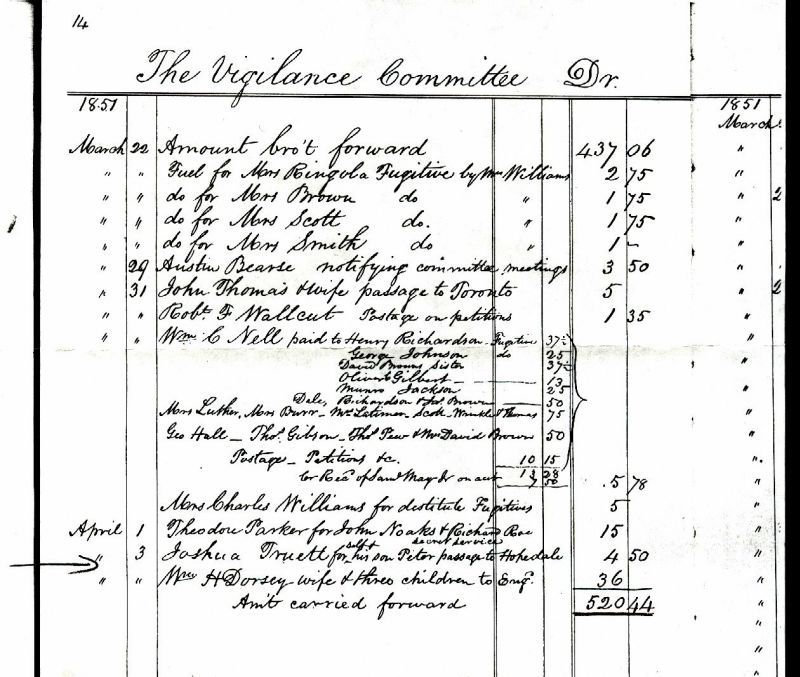 14
The Vigilance Committee Dr.
1851
1851
March 22 Amount bro't forward 437 06
March
" " Fuel for Mrs Ringola Fugitive by Mrs Williams 2 75
" " do for Mrs Brown do " 1 75
" " do for Mrs Scott do. " 1 75
" " do for Mrs Smith do " 1 -
" 29 Austin Bearse notifying committee meetings 3 50
" 31 John Thomas & wife passage to Toronto 5
" " Robt F Wallcut Postage on petitions 1 35
" " Wm C Nell paid to Henry Richardson Fugitive 37½
George Johnson do 25
David Browns Sister 37½
Oliver Gilbert 13
Munro Jackson 25
Dale, Richardson & Jas Brown 50
Mrs Luther, Mrs Burr - Mrs Latimer Scott Winkle & Thomas 75
Geo Hall - Thos. Gibson - Thos Pew & Mrs David Brown 50
Postage - Petitions &c. 10 15
Cr Recd of Saml May Jr on acct
5 78
Mrs Charles Williams for destitute Fugitives 5
April 1 Theodore Parker for John Noaks & Richard Roe 15
secret service
" 3 Joshua Truett for self & his son Peter passage to Hopedale 4 50
" " Wm H Dorsey wife & three children to Eng. 36
Amt carried forward 520 44